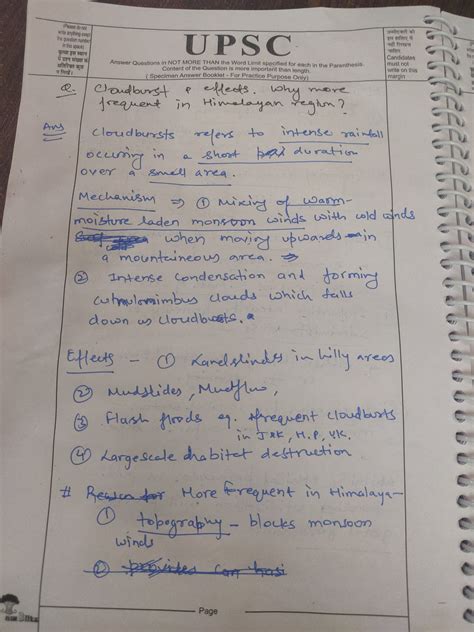 UPSC
Answer Questions in NOT MORE THAN the Word Limit specified for each in the Parenthesis.
Content of the Question is more important than length.
( Specimen Answer Booklet - For Practice Purpose Only)
Candidates
must not
write on this
margin
Q. Cloudburst & effects. Why more
frequent in Himalayan region?
Ans
Cloudbursts refers to intense rainfall
occuring in a short duration
over a small area.
Mechanism ⇒ ① Mixing of warm-
moisture laden monsoon winds with cold winds
when moving upwards in
a mountaineous area. ⇒
② Intense condensation and forming
cumulonimbus clouds which falls
down as cloudbursts.
Effects - ① Landslinds in hilly areas
② Mudslides, Mudflow,
③ Flash floods eg. frequent cloudbursts
in J&K, H.P, UK.
④ Largescale habitet destruction
# More frequent in Himalaya-
① topography - blocks monsoon
winds
②
Page